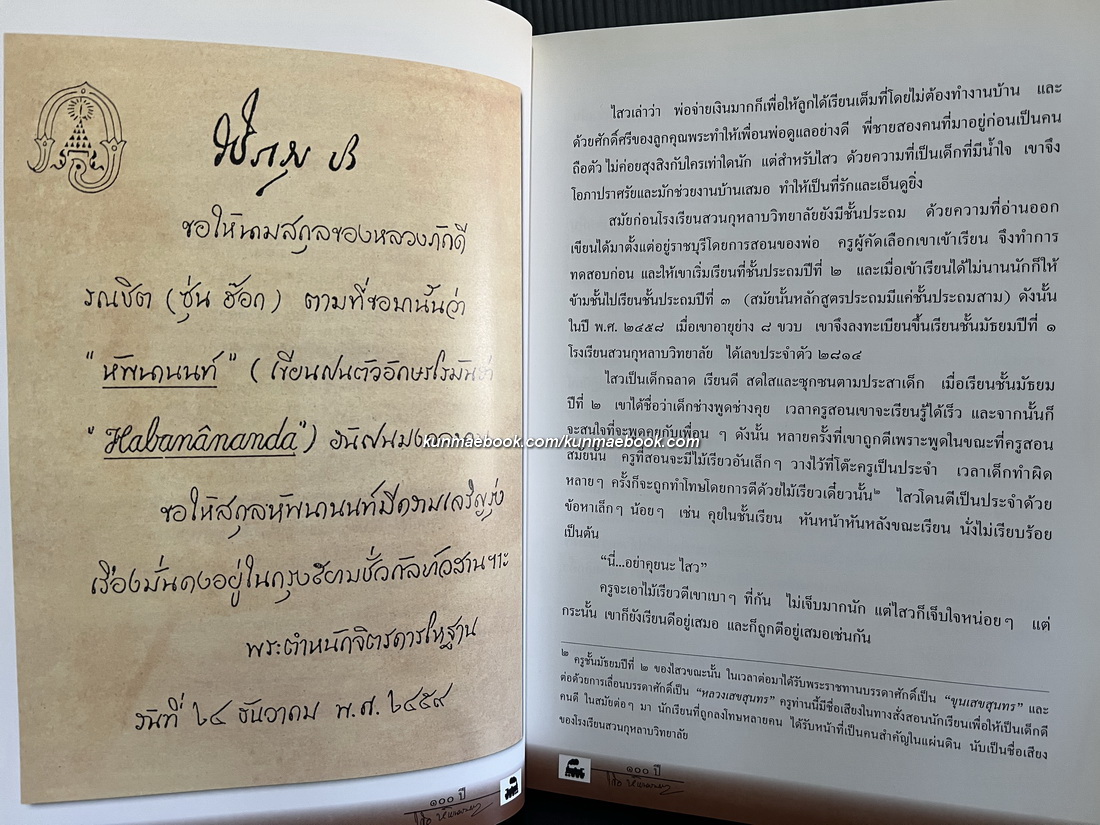 ขอให้นามสกุลของหลวงภักดี
รณชิต (ซุ่น ฮ๊อก) ตามที่ขอมานั้นว่า
"หัพนานนท์" (เขียนเปนตัวอักษรโรมันว่า
"Habanânanda")
ขอให้สกุลหัพนานนท์มีความเจริญรุ่ง
เรืองมั่นคงอยู่ในกรุงสยามชั่วกัลปาวสาน ฯาะ
พระตำหนักจิตรลดารโหฐาน
วันที่ ๒๔ ธันวาคม พ.ศ. ๒๔๕๙
๑๐๐ ปี
ไสวเล่าว่า พ่อจ่ายเงินมากก็เพื่อให้ลูกได้เรียนเต็มที่โดยไม่ต้องทำงานบ้าน และ
ด้วยศักดิ์ศรีของลูกคุณพระทำให้เพื่อนพ่อดูแลอย่างดี พี่ชายสองคนที่มาอยู่ก่อนเป็นคน
ถือตัว ไม่ค่อยสุงสิงกับใครเท่าใดนัก แต่สำหรับไสว ด้วยความที่เป็นเด็กที่มีน้ำใจ เขาจึง
โอภาปราศรัยและมักช่วยงานบ้านเสมอ ทำให้เป็นที่รักและเอ็นดูยิ่ง
สมัยก่อนโรงเรียนสวนกุหลาบวิทยาลัยยังมีชั้นประถม ด้วยความที่อ่านออก
เขียนได้มาตั้งแต่อยู่ราชบุรีโดยการสอนของพ่อ ครูผู้คัดเลือกเขาเข้าเรียน จึงทำการ
ทดสอบก่อน และให้เขาเริ่มเรียนที่ชั้นประถมปีที่ ๒ และเมื่อเข้าเรียนได้ไม่นานนักก็ให้
ข้ามชั้นไปเรียนชั้นประถมปีที่ ๓ (สมัยนั้นหลักสูตรประถมมีแค่ชั้นประถมสาม) ดังนั้น
ในปี พ.ศ. ๒๔๕๘ เมื่อเขาอายุย่าง ๘ ขวบ เขาจึงลงทะเบียนขึ้นเรียนชั้นมัธยมปีที่ ๑
โรงเรียนสวนกุหลาบวิทยาลัย ได้เลขประจำตัว ๒๘๑๔
ไสวเป็นเด็กฉลาด เรียนดี สดใสและซุกซนตามประสาเด็ก เมื่อเรียนชั้นมัธยม
ปีที่ ๒ เขาได้ชื่อว่าเด็กช่างพูดช่างคุย เวลาครูสอนเขาจะเรียนรู้ได้เร็ว และจากนั้นก็
จะสนใจที่จะพูดคุยกับเพื่อน ๆ ดังนั้น หลายครั้งที่เขาถูกตีเพราะพูดในขณะที่ครูสอน
สมัยนั้น ครูที่สอนจะมีไม้เรียวอันเล็กๆ วางไว้ที่โต๊ะครูเป็นประจำ เวลาเด็กทำผิด
หลายๆ ครั้งก็จะถูกทำโทษโดยการตีด้วยไม้เรียวเดี่ยวนั้น๒ ไสวโดนตีเป็นประจำด้วย
ข้อหาเล็กๆ น้อยๆ เช่น คุยในชั้นเรียน หันหน้าหันหลังขณะเรียน นั่งไม่เรียบร้อย
เป็นต้น
“นี่...อย่าคุยนะ ไสว”
ครูจะเอาไม้เรียวตีเขาเบาๆ ที่ก้น ไม่เจ็บมากนัก แต่ไสวก็เจ็บใจหน่อยๆ แต่
กระนั้น เขาก็ยังเรียนดีอยู่เสมอ และก็ถูกตีอยู่เสมอเช่นกัน
๒ ครูชั้นมัธยมปีที่ ๒ ของไสวขณะนั้น ในเวลาต่อมาได้รับพระราชทานบรรดาศักดิ์เป็น “ขุนเสขสุนทร” และ
ต่อด้วยการเลื่อนบรรดาศักดิ์เป็น “หลวงเสขสุนทร” ครูท่านนี้มีชื่อเสียงในทางสั่งสอนนักเรียนเพื่อให้เป็นเด็กดี
คนดี ในสมัยต่อๆ มา นักเรียนที่ถูกลงโทษหลายคน ได้รับหน้าที่เป็นคนสำคัญในแผ่นดิน นับเป็นชื่อเสียง
ของโรงเรียนสวนกุหลาบวิทยาลัย
๑๐๐ ปี
kunmaebook.com/kunmaebook.com